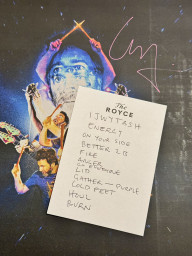 The
ROYCE
I JWYTRSH
ENERGY
ON YOUR SIDE
BETTER 2 B
FIRE
ANGER
LID
GATHER — PURPLE
COLD FEET
HOWL
BURN